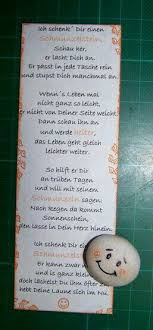 Ich schenk´ Dir einen
Schmunzelstein.
Schau her,
er lacht Dich an.
Er passt in jede Tasche rein
und stupst Dich manchmal an.
Wenn´s Leben mal
nicht ganz so leicht,
er nicht von Deiner Seite weicht.
Dann schau ihn an
und werde heiter,
das Leben geht gleich
leichter weiter.
So hilft er Dir
an trüben Tagen
und will mit seinem
Schmunzeln sagen:
Nach Regen da kommt
Sonnenschein,
den lasse in Dein Herz hinein.
Ich schenk´ Dir einen
Schmunzelstein
Er kann zwar
und is ganz klein
doch lächelst Du ihn öfter
hebt Deine Laune sich im Nu.